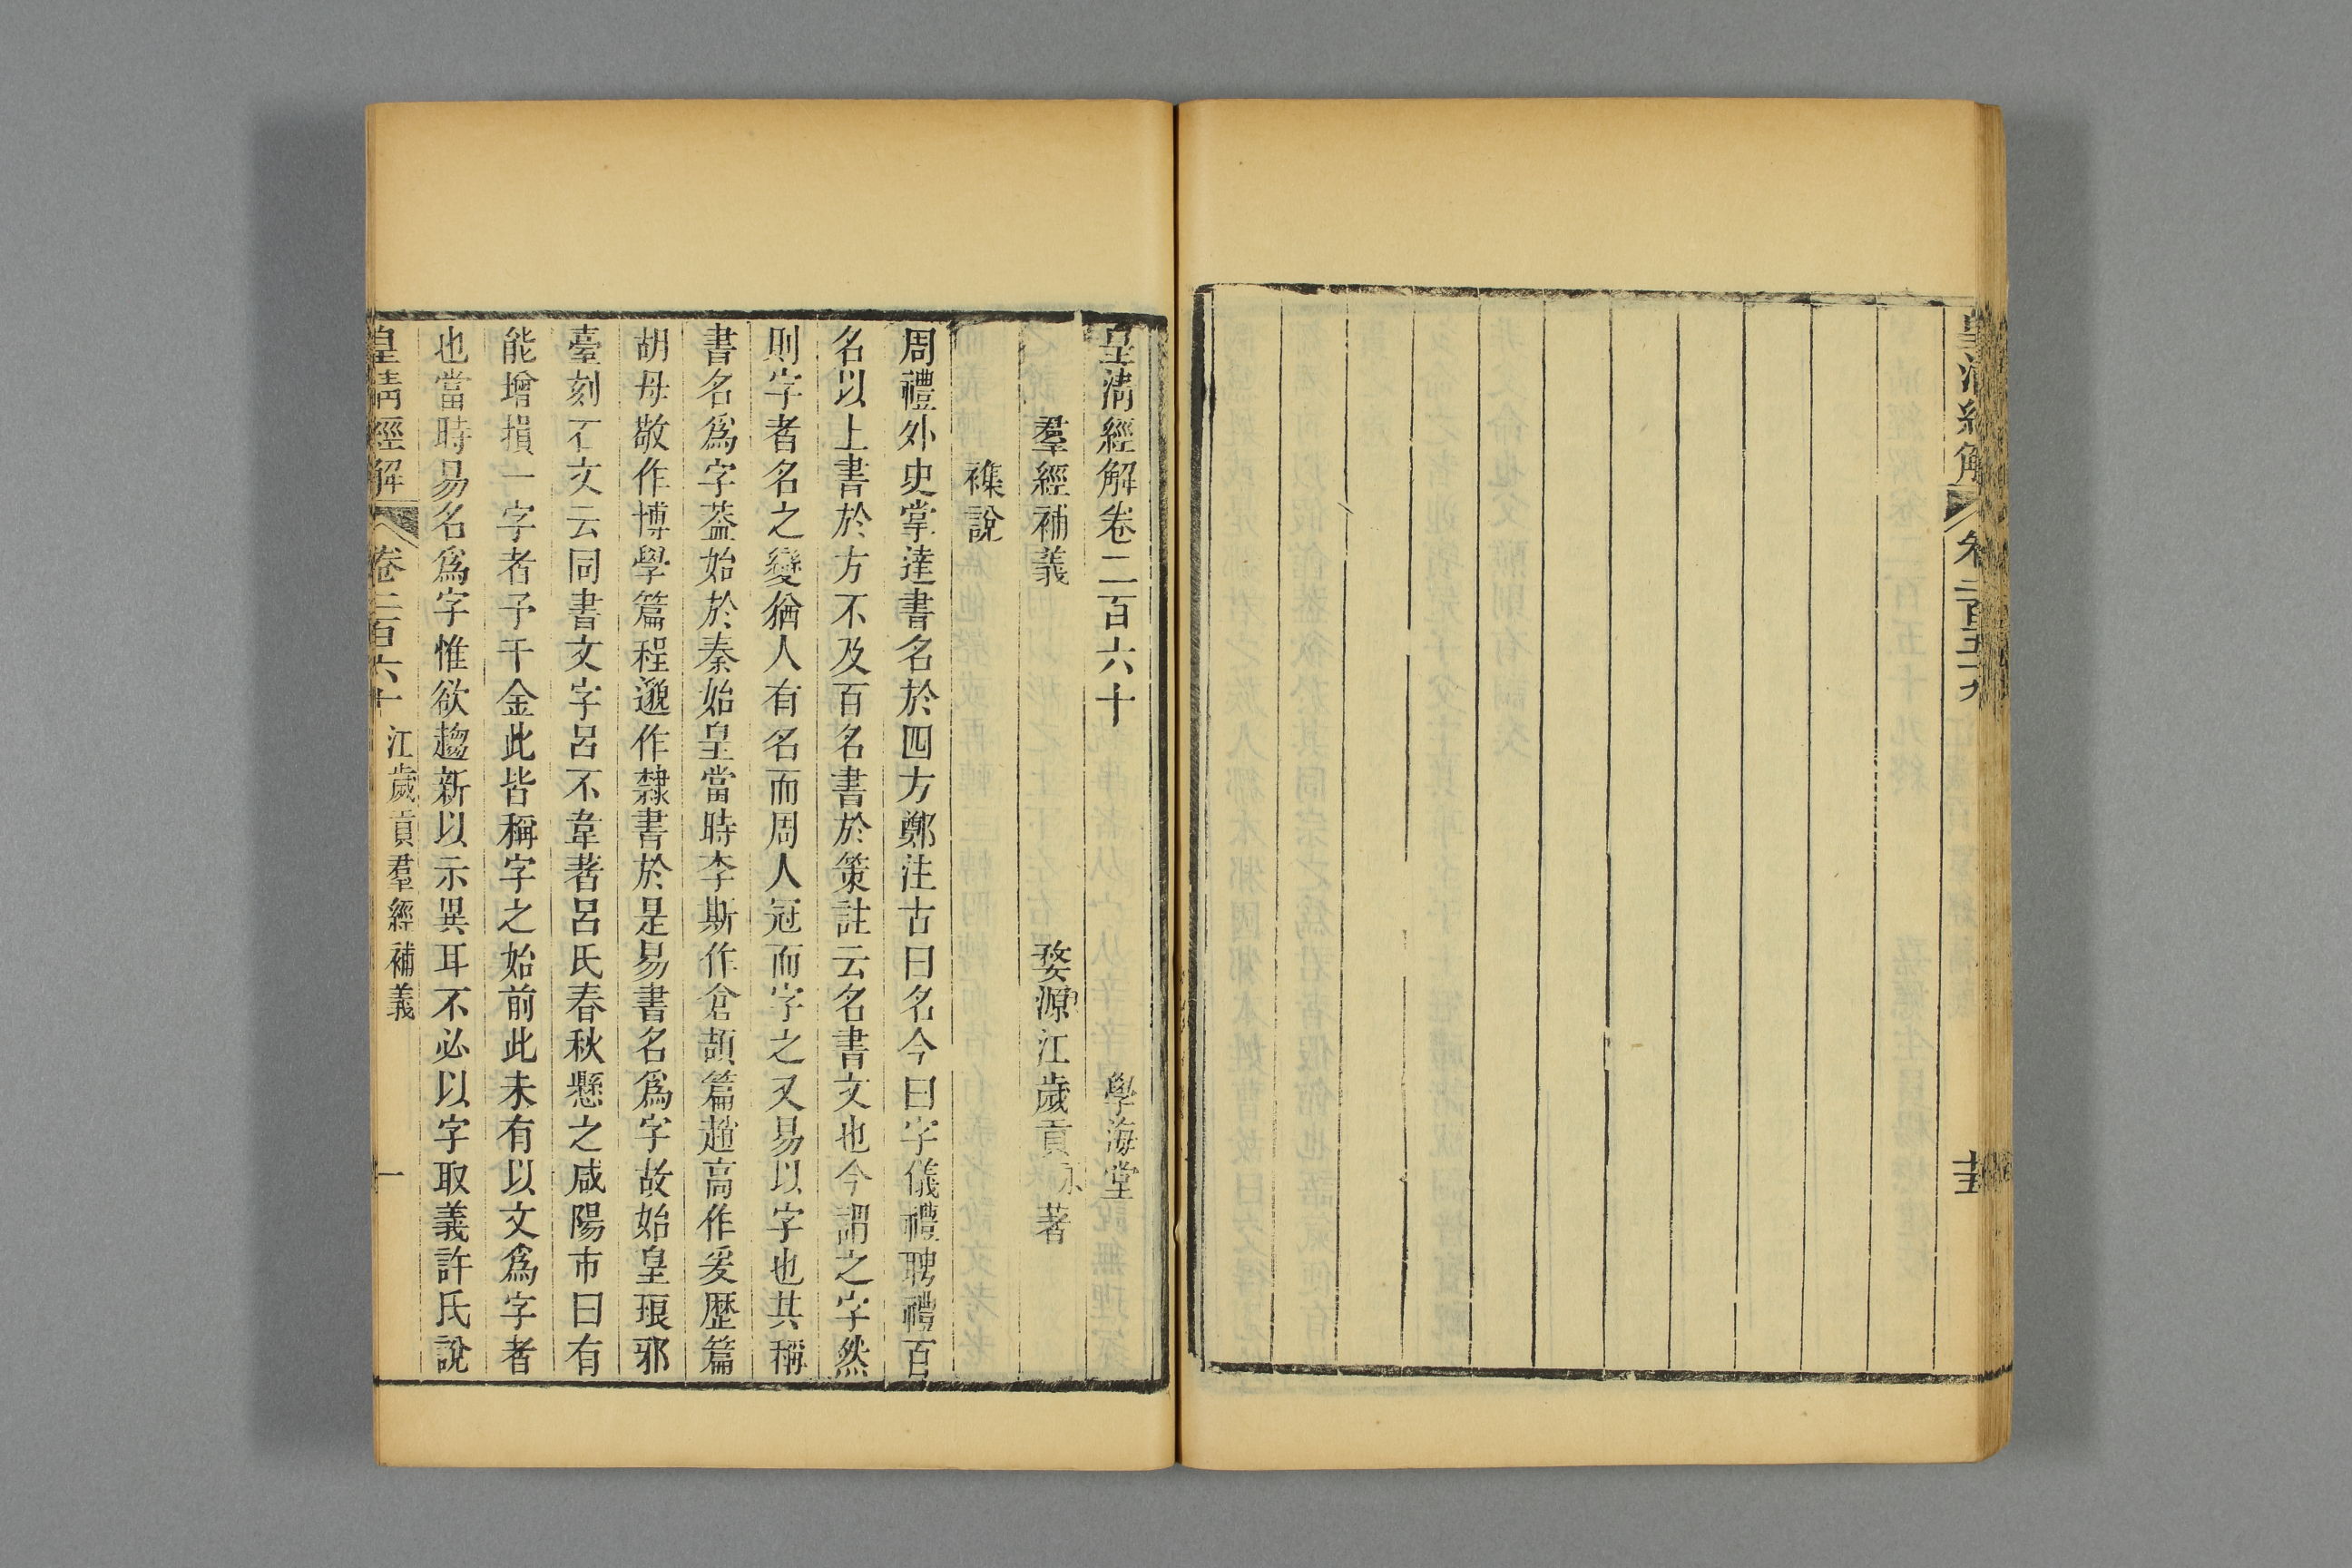 皇清經解
卷二百五十九
皇清經解卷二百六十
學海堂
羣經補義
婺源江歲貢永著
襍說
周禮外史掌達書名於四方鄭注古曰名今曰字儀禮聘禮百
名以上書於方不及百名書於策註云名書文也今謂之字然
則字者名之變猶人有名而周人冠而字之又易以字也其稱
書名爲字葢始於秦始皇當時李斯作倉頡篇趙高作爰歷篇
胡母敬作博學篇程邈作隸書於是易書名爲字故始皇琅邪
臺刻石文云同書文字呂不韋著呂氏春秋懸之咸陽市曰有
能增損一字者予千金此皆稱字之始前此未有以文爲字者
也當時易名爲字惟欲趨新以示異耳不必以字取義許氏說
皇清經解
卷二百六十
江歲貢羣經補義
一